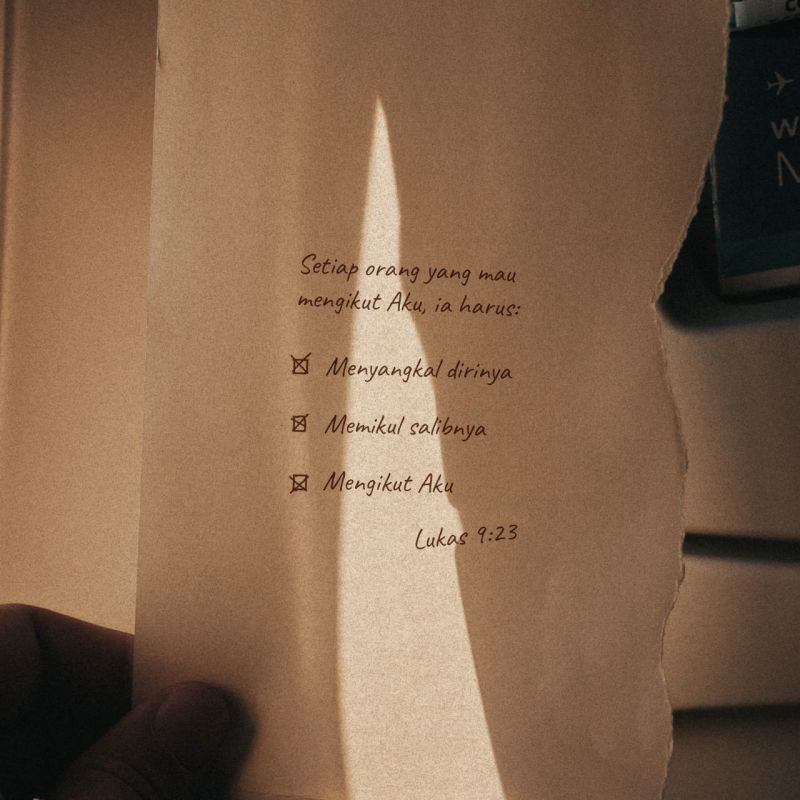 Setiap orang yang mau
mengikut Aku, ia harus:
Menyangkal dirinya
Memikul salibnya
Mengikut Aku
Lukas 9:23